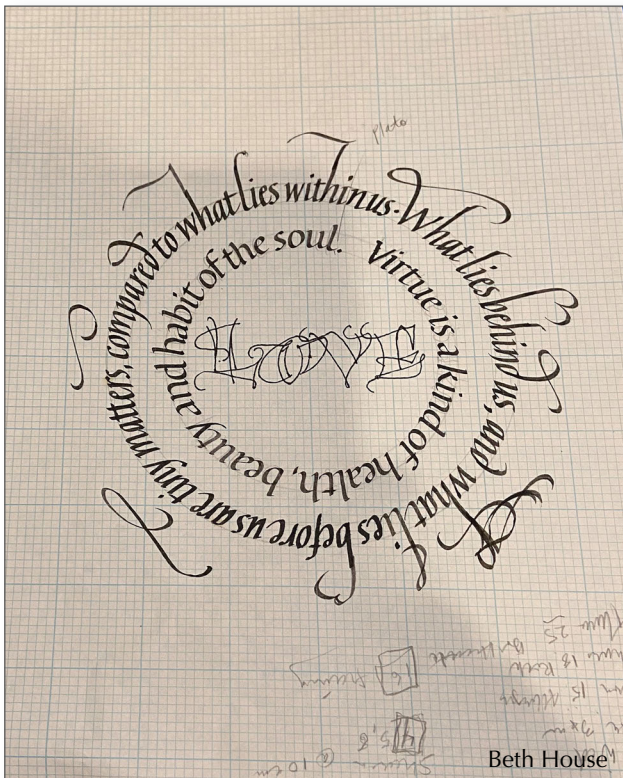 Plato
What lies behind us, and what lies before us are tiny matters, compared to what lies within us.
Virtue is a kind of health, beauty and habit of the soul.
LOVE
Beth House